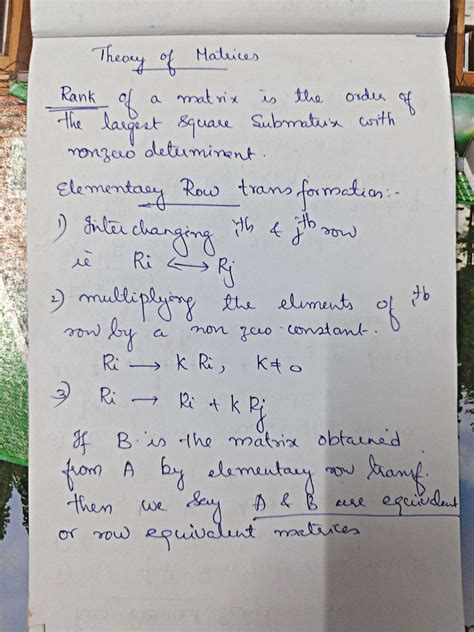 Theory of Matrices
Rank of a matrix is the order of
the largest square submatrix with
nonzero determinent.
Elementary Row transformation:-
1) Interchanging ith & jth row
ie Ri ⟷ Rj
2) multiplying the elements of ith
row by a non zero constant.
Ri → k Ri, K≠0
3) Ri → Ri + k Rj
If B is the matrix obtained
from A by elementary row transf.
then we say A & B are equivalent
or row equivalent matrices